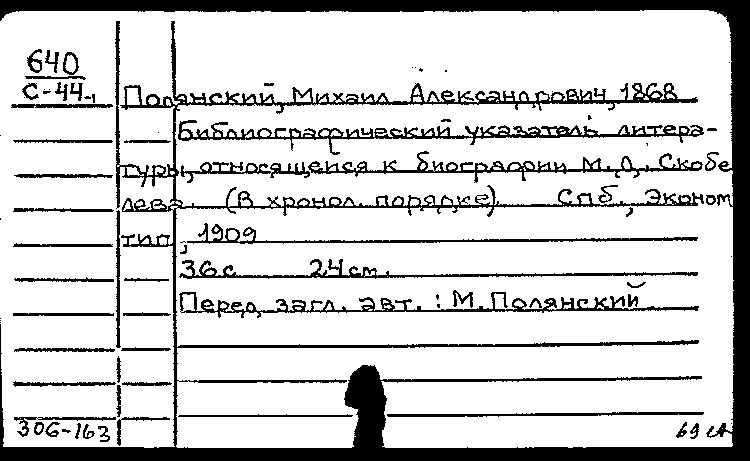 640
С-44
Полянский, Михаил Александрович, 1868
Библиографический указатель литера-
туры, относящейся к биографии М.Д. Скобе
лева. (В хронол. порядке) Спб., Эконом
тип, 1909
36 с 24 см.
Перед загл. авт.: М. Полянский
306-163